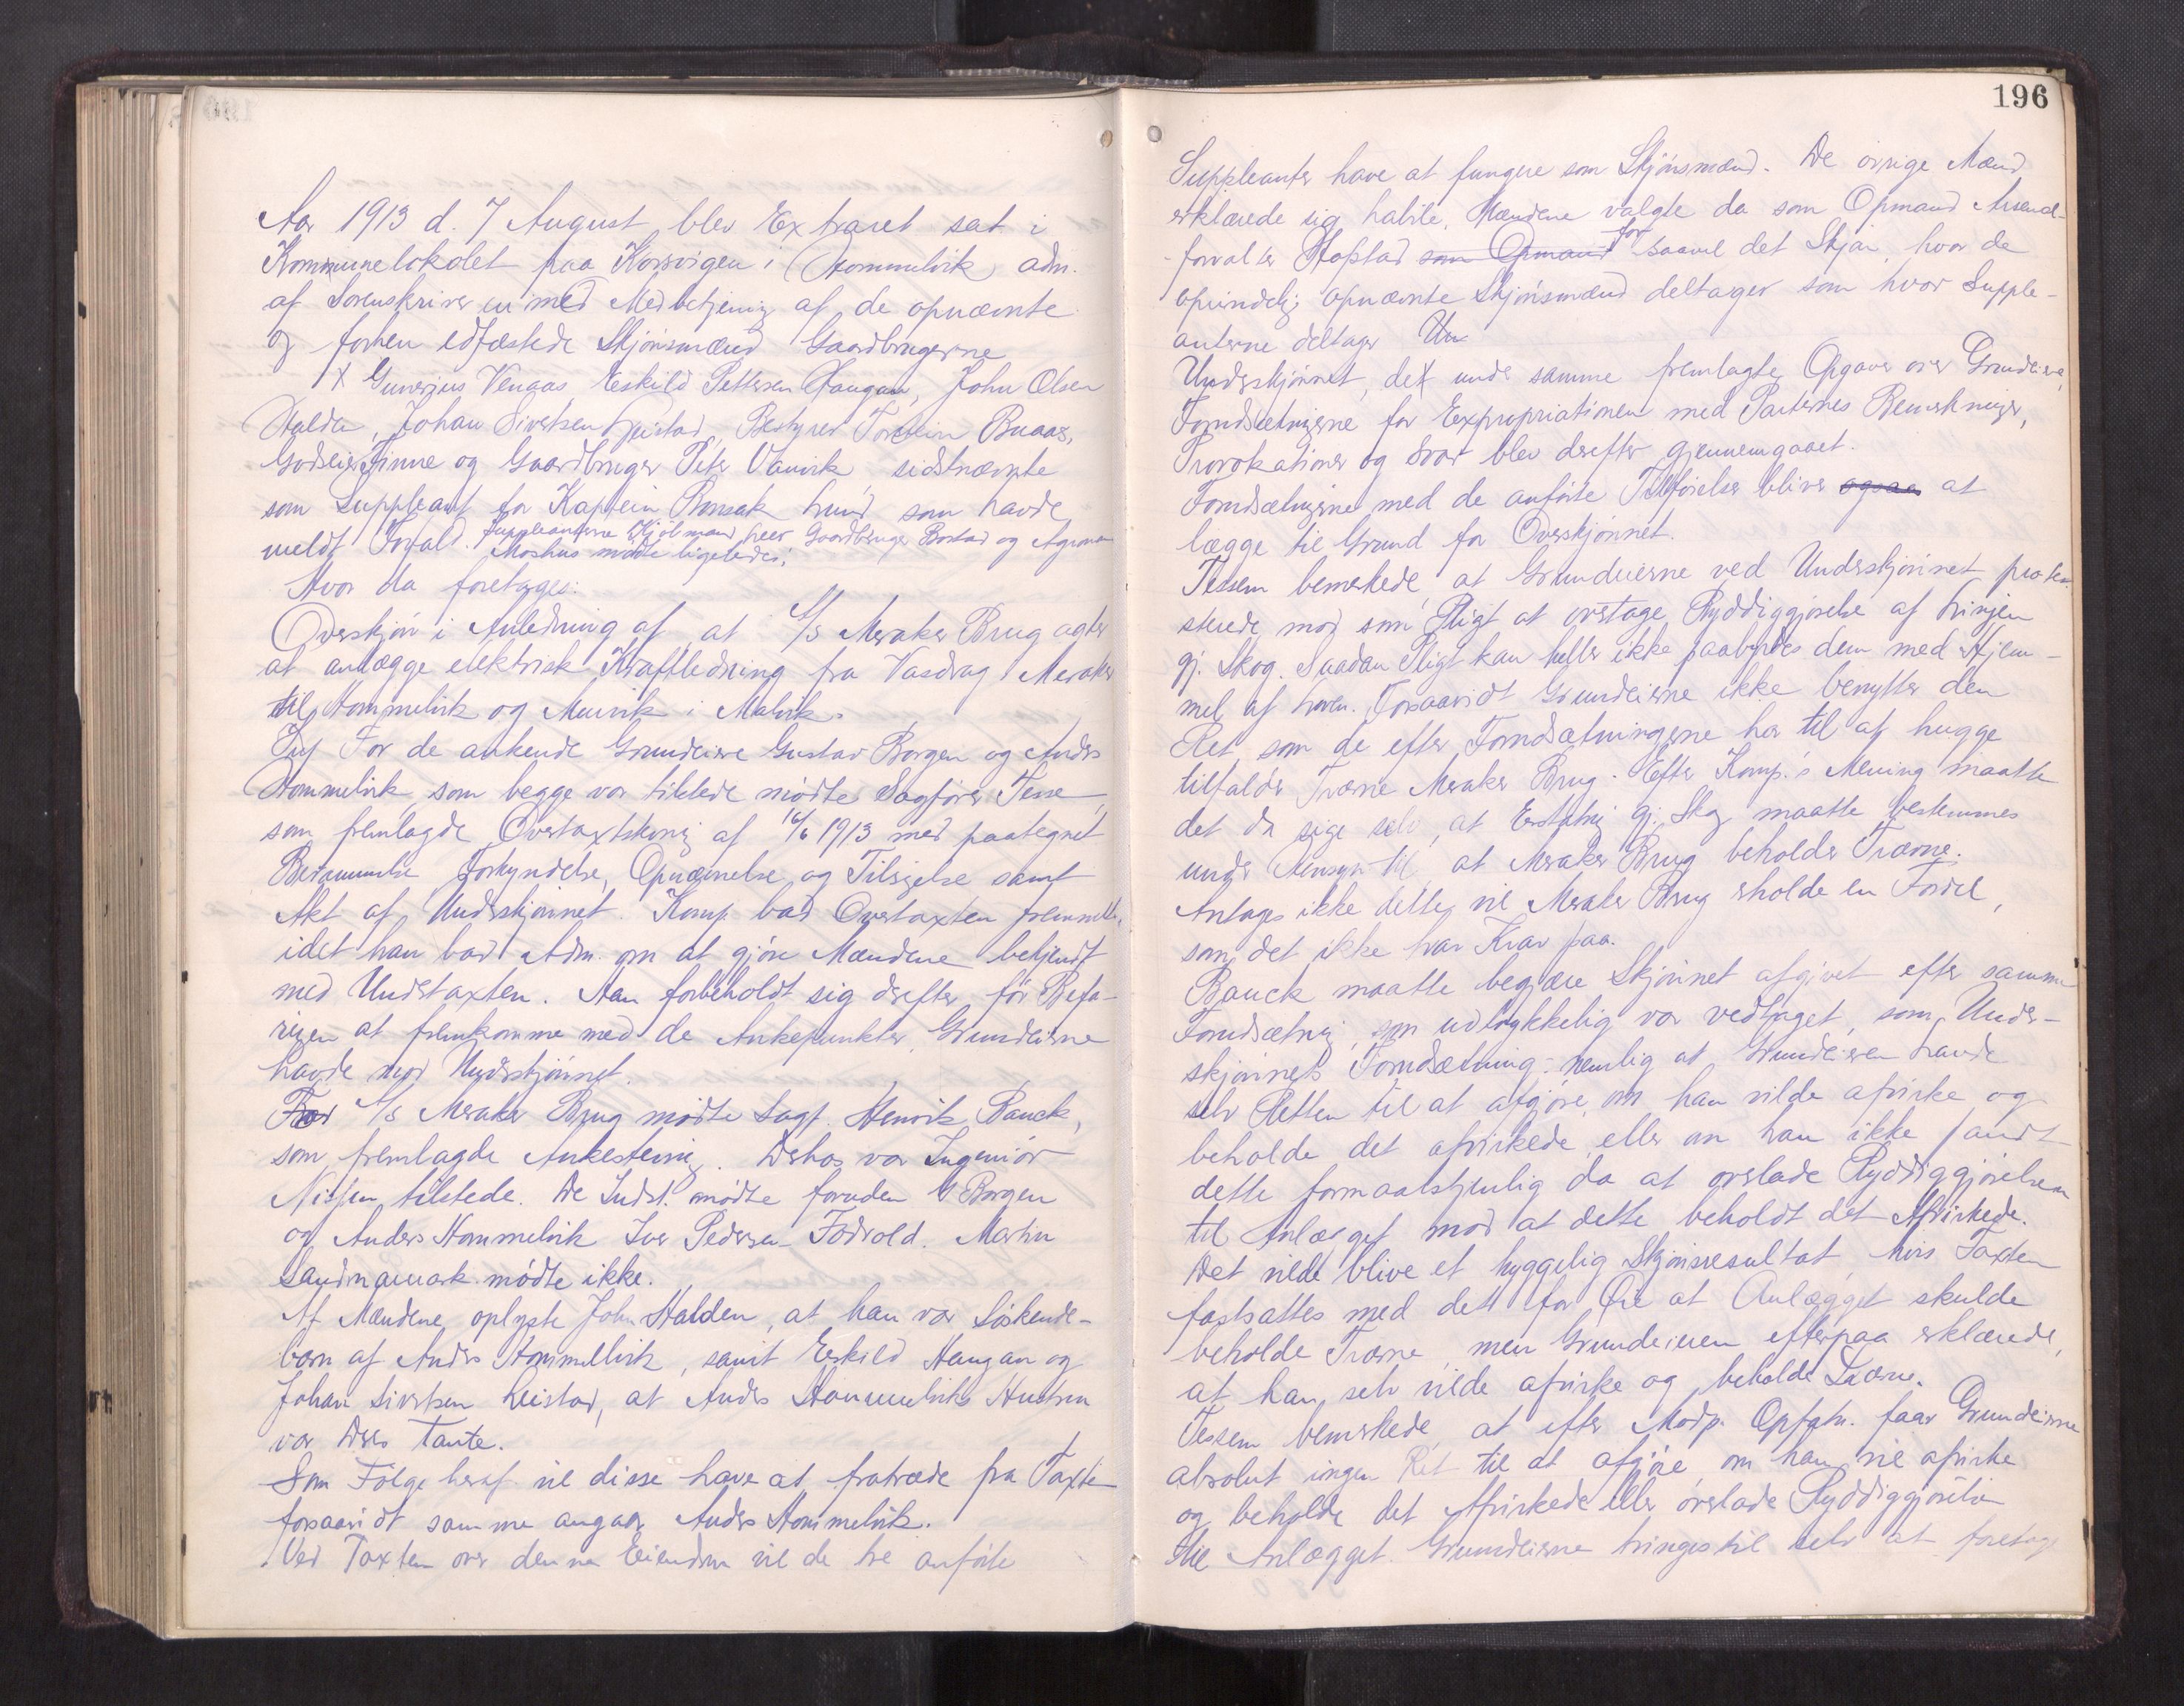 Aar 1913 d. 7 August blev Extraret sat i
Kommunelokalet paa Korsvigen i Hommelvik adm.
af Sorenskriveren med Medbetjening af de opnævnte
og forhen edfæstede Skjönsmænd Gaardbrugerne
Gunerius Vengaas Eskild Pettersen Haugan, John Olsen
Halden, Johan Sivertsen Leistad, Bestyrer Torstein Buaas,
Godseier Finne og Gaardbruger Peter Vanvik sidstnævnte
som Suppleant for Kaptein Bonsak hvem som havde
meldt Forfald. Suppleanterne Gaardbruger Bostad og Agronom
Moshus mødte ligeledes:
Hvor da foretoges:
Overskjön i Anledning af at A/s Meraker Brug agter
at anlægge elektrisk Kraftledning fra Vasdrag i Meraker
til Hommelvik og Muruvik i Malvik.
For de ankende Grundeiere Gustav Borgen og Anders
Hommelvik som begge var tilstede mödte Sagförer Tessem,
som fremlagde Overtaxtskrav af 16/6 1913 med paategnet
Berammelse Forkyndelse, Opnævnelse og Tilsigelse samt
Akt af Underskjönnet. Komp. bad Overtaxten fremmet,
idet han bad Adm. om at gjöre Mændene bekjendt
med Undertaxten. Han forbeholdt sig derefter för Befa-
ringen at fremkomme med de Ankepunkter, Grundeierne
havde mod Underskjönnet.
For A/s Meraker Brug mödte Sagf. Henrik Bauck,
som fremlagde Ankestevning. Derhos var Ingeniör
Nissen tilstede. De Indst. mödte foruden G Borgen
og Anders Hommelvik Iver Pedersen Fodvold. Martin
Sandmamark mödte ikke.
Af Mændene oplyste John Halden, at han var Söskende-
barn af Anders Hommelvik, samt Eskild Haugan og
Johan Sivertsen Leistad, at Anders Hommelviks Hustru
var deres Tante.
Som Fölge heraf vil disse have at fratræde fra Taxten
forsaavidt samme angaar Anders Hommelvik.
Ved Taxten over denne Eiendom vil de tre anförte
196
Suppleanter have at fungere som Skjönsmænd. De övrige Mænd
erklærede sig habile. Mændene valgte da som Opmand
forvalter Hopstad som Opmand for saavel det Skjön, hvor de
oprindelig opnævnte Skjönsmænd deltager som hvor Supple-
anterne deltager Un
Underskjönnet, det under samme fremlagte Opgaver over Grundeiere,
Forudsætningerne for Expropriationen med Parternes Bemerkninger,
Provokationer og Svar blev derefter gjennemgaaet.
Forudsætningerne med de anförte Tilföielser bliver ogsaa at
lægge til Grund for Overskjönnet.
Tessem bemerkede, at Grundeierne ved Underskjönnet prote-
sterede mod som Pligt at overtage Ryddiggjörelse af Linjen
gj. Skog. Saadan Pligt kan heller ikke paabyrdes dem med Hjem-
mel af Loven. Forsaavidt Grundeierne ikke benytter den
Ret som de efter Forudsætningerne har til at hugge
tilfalder Trærne Meraker Brug. Efter Komp.'s Mening maatte
det da sige selv, at Erstatning gj. Skog maatte bestemmes
under Hensyn til at Meraker Brug beholder Trærne.
Antages ikke dette, vil Meraker Brug erholde en Fordel,
som det ikke har Krav paa.
Bauck maatte begjære Skjönnet afgivet efter samme
Forudsætning, som udtrykkelig var vedtaget, som Under-
skjönnets Forudsætning: nemlig at Grundeieren havde
selv Retten til at afgjöre, om han vilde afvirke og
beholde det afvirkede, eller om han ikke fandt
dette formaalstjenlig da at overlade Ryddiggjörelsen
til Anlægget mod at dette beholdt det Afvirkede.
Det vilde blive et hyggelig Skjönsresultat, hvis Taxten
fastsattes med dett for Öie at Anlægget skulde
beholde Trærne, men Grundeieren efterpaa erklærede,
at han selv vilde afvirke og beholde Trærne.
Tessem bemerkede, at efter Modp. Opfatn. faar Grundeierne
absolut ingen Ret til at afgjöre, om han vil afvirke
og beholde det Afvirkede eller overlade Ryddiggjörelsen
til Anlægget. Grundeierne tvinges til selv at foretage